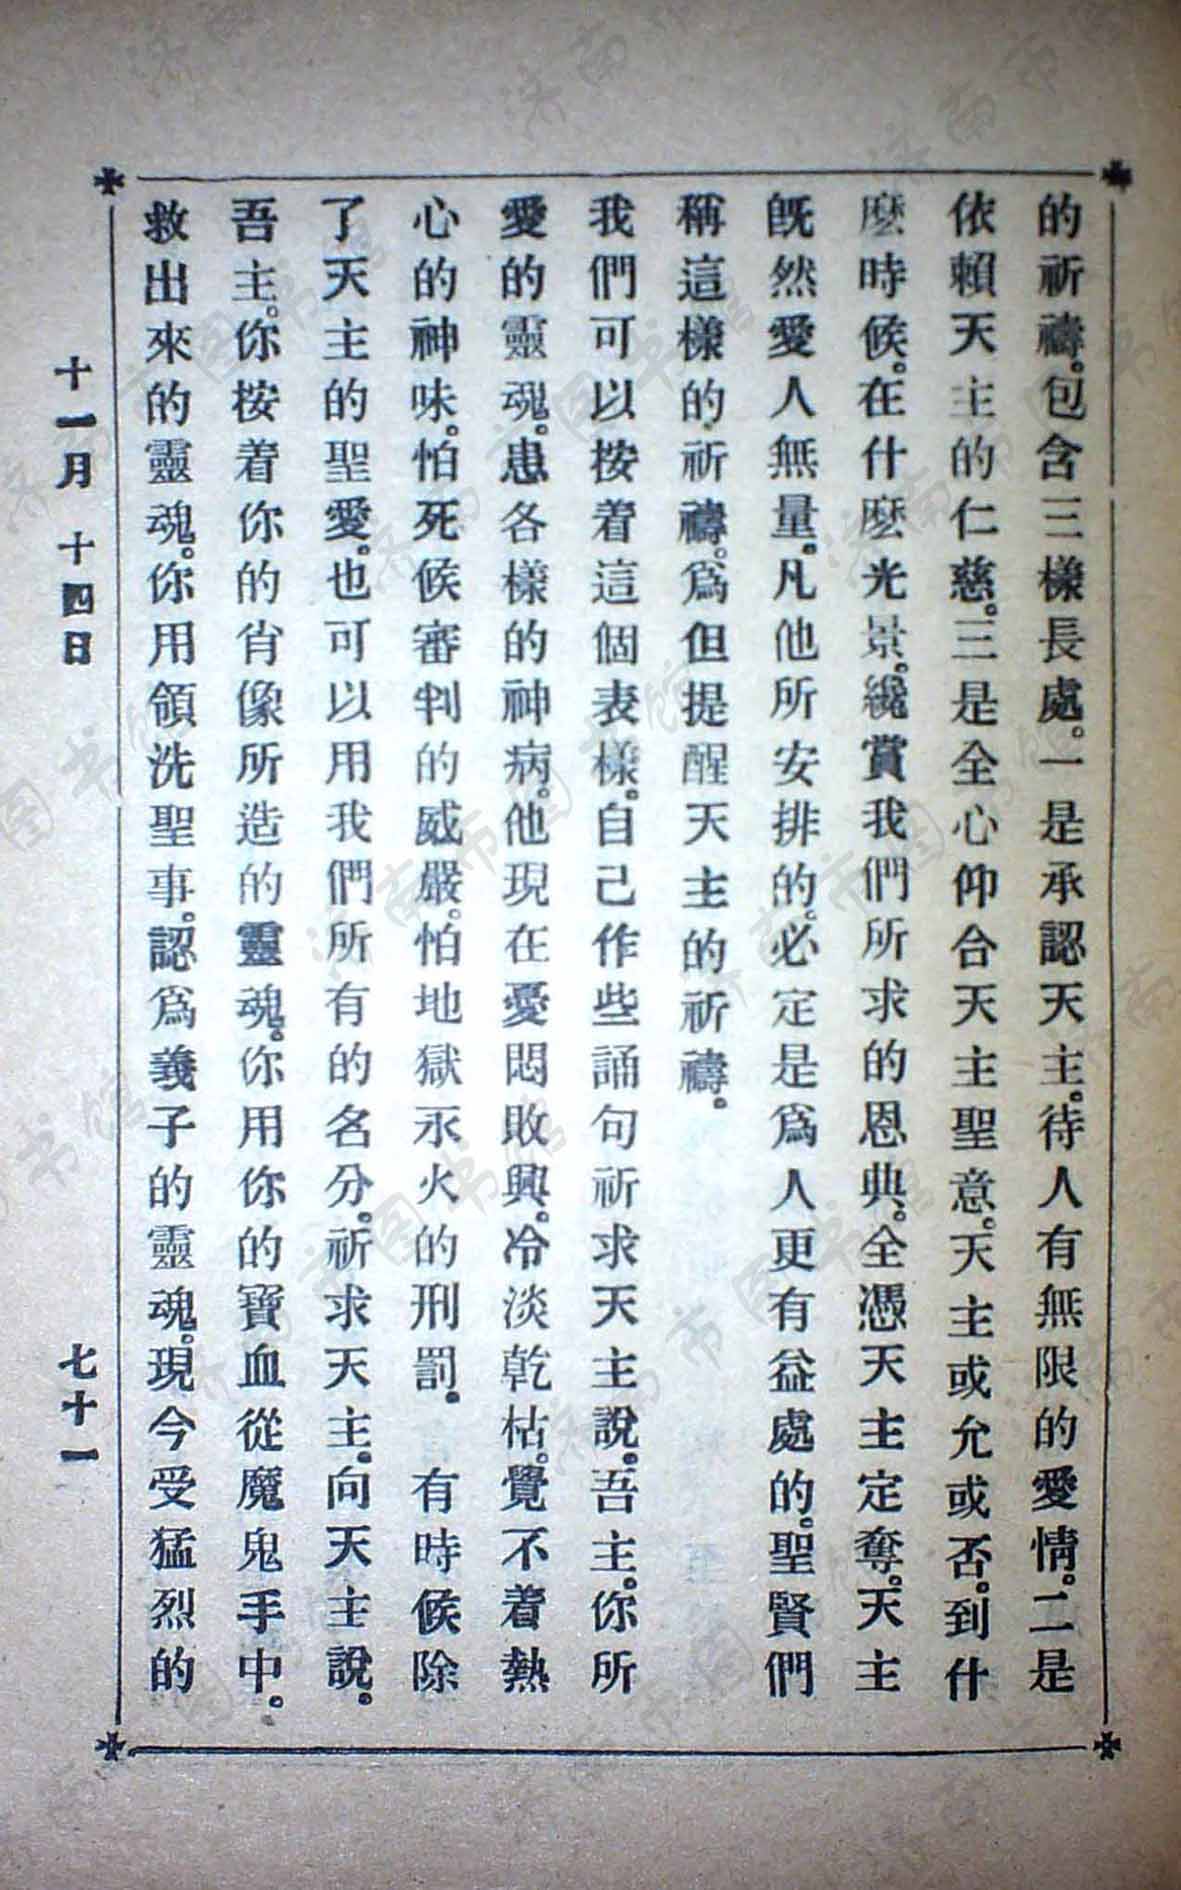 的祈禱。包含三樣長處。一是承認天主。待人有無限的愛情。二是
依賴天主的仁慈。三是全心仰合天主聖意。天主或允或否。到什
麽時候。在什麽光景。纔賞我們所求的恩典。全憑天主定奪。天主
旣然愛人無量。凡他所安排的。必定是爲人更有益處的。聖賢們
稱這樣的祈禱。爲但提醒天主的祈禱。
我們可以按着這個表樣。自己作些誦句祈求天主說。吾主。你所
愛的靈魂。患各樣的神病。他現在憂悶敗興。冷淡乾枯。覺不着熱
心的神味。怕死候審判的威嚴。怕地獄永火的刑罰。　有時候除
了天主的聖愛。也可以用我們所有的名分。祈求天主。向天主說。
吾主。你按着你的肖像所造的靈魂。你用你的寶血從魔鬼手中。
救出來的靈魂。你用領洗聖事。認爲義子的靈魂。現今受猛烈的
十一月 十四日
七十一
濟南市图书馆